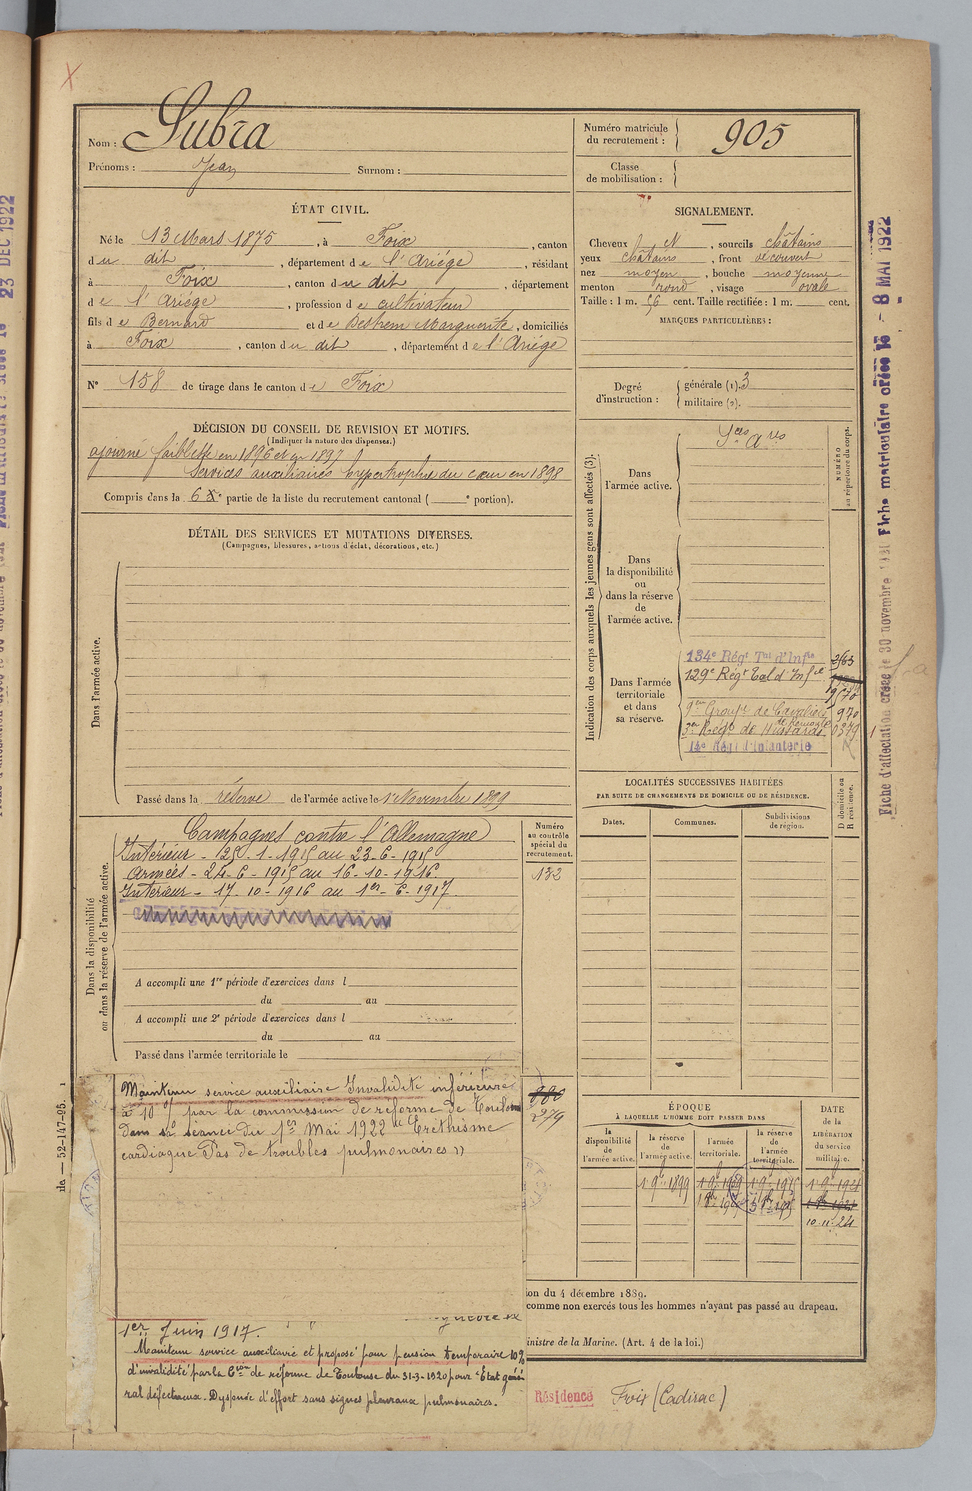 Subra
Nom :
Prénoms : Jean Surnom :
Numéro matricule du recrutement : 905
Classe de mobilisation :
ÉTAT CIVIL.
Né le 13 Mars 1875, à Foix, canton
du dit, département de l'Ariége, résidant
à Foix, canton du dit, département
de l'Ariége, profession de cultivateur
fils de Bernard et de Destrem Marguerite, domiciliés
à Foix, canton du dit, département de l'Ariége
N° 158 de tirage dans le canton de Foix
DÉCISION DU CONSEIL DE REVISION ET MOTIFS.
(Indiquer la nature des dispenses.)
ajourné faiblesse en 1896 et en 1897
Services auxiliaires hypertrophie du cœur en 1898
Compris dans la 6e partie de la liste du recrutement cantonal ( e portion).
SIGNALEMENT.
Cheveux et, sourcils châtains
yeux châtains, front découvert
nez moyen, bouche moyenne
menton rond, visage ovale
Taille : 1 m. 56 cent. Taille rectifiée : 1 m. cent.
MARQUES PARTICULIÈRES :
Degré d'instruction : générale (1). 3
militaire (2).
DÉTAIL DES SERVICES ET MUTATIONS DIVERSES.
(Campagnes, blessures, actions d'éclat, décorations, etc.)
Dans l'armée active.
Passé dans la réserve de l'armée active le 1er Novembre 1899
Indication des corps auxquels les jeunes gens sont affectés (3).
NUMÉRO au répertoire du corps.
Dans l'armée active.
Dans la disponibilité ou dans la réserve de l'armée active.
Dans l'armée territoriale et dans sa réserve.
134e Régt Tal d'Infie
129e Régt Tal d'Infie
9me Groupt de Cavaliers de Remonte 970
3e Régt de Hussards 0379
14e Régt d'Infanterie
Dans la disponibilité ou dans la réserve de l'armée active.
Campagnes contre l'Allemagne
Intérieur - 25-1-1915 au 23-6-1915
Armées - 24-6-1915 au 16-10-1916
Intérieur - 17-10-1916 au 1er-6-1917
Numéro au contrôle spécial du recrutement.
132
A accompli une 1re période d'exercices dans l
du au
A accompli une 2e période d'exercices dans l
du au
Passé dans l'armée territoriale le
LOCALITÉS SUCCESSIVES HABITÉES
PAR SUITE DE CHANGEMENTS DE DOMICILE OU DE RÉSIDENCE.
Dates. Communes. Subdivisions de région. D domicile ou R résidence.
Maintenu service auxiliaire Invalidité inférieure
à 10% par la commission de réforme de Toulouse
dans sa séance du 1er Mai 1922 Eréthisme
cardiaque Pas de troubles pulmonaires »
279
ÉPOQUE
À LAQUELLE L'HOMME DOIT PASSER DANS
la disponibilité de l'armée active. la réserve de l'armée active. l'armée territoriale. la réserve de l'armée territoriale.
DATE de la LIBÉRATION du service militaire.
10.11.24
ion du 4 décembre 1889.
comme non exercés tous les hommes n'ayant pas passé au drapeau.
inistre de la Marine. (Art. 4 de la loi.)
1er Juin 1917.
Maintenu service auxiliaire et proposé pour pension temporaire 10%
d'invalidité par la Con de réforme de Toulouse du 31-3-1920 pour "Etat géné
ral défectueux. Dyspnée d'effort sans signes pleuraux pulmonaires.
Résidence Foix (Cadirac)
52-147-95.
23 DEC 1922
Fiche matriculaire créée le - 8 MAI 1922
Fiche d'affectation créée le 30 novembre